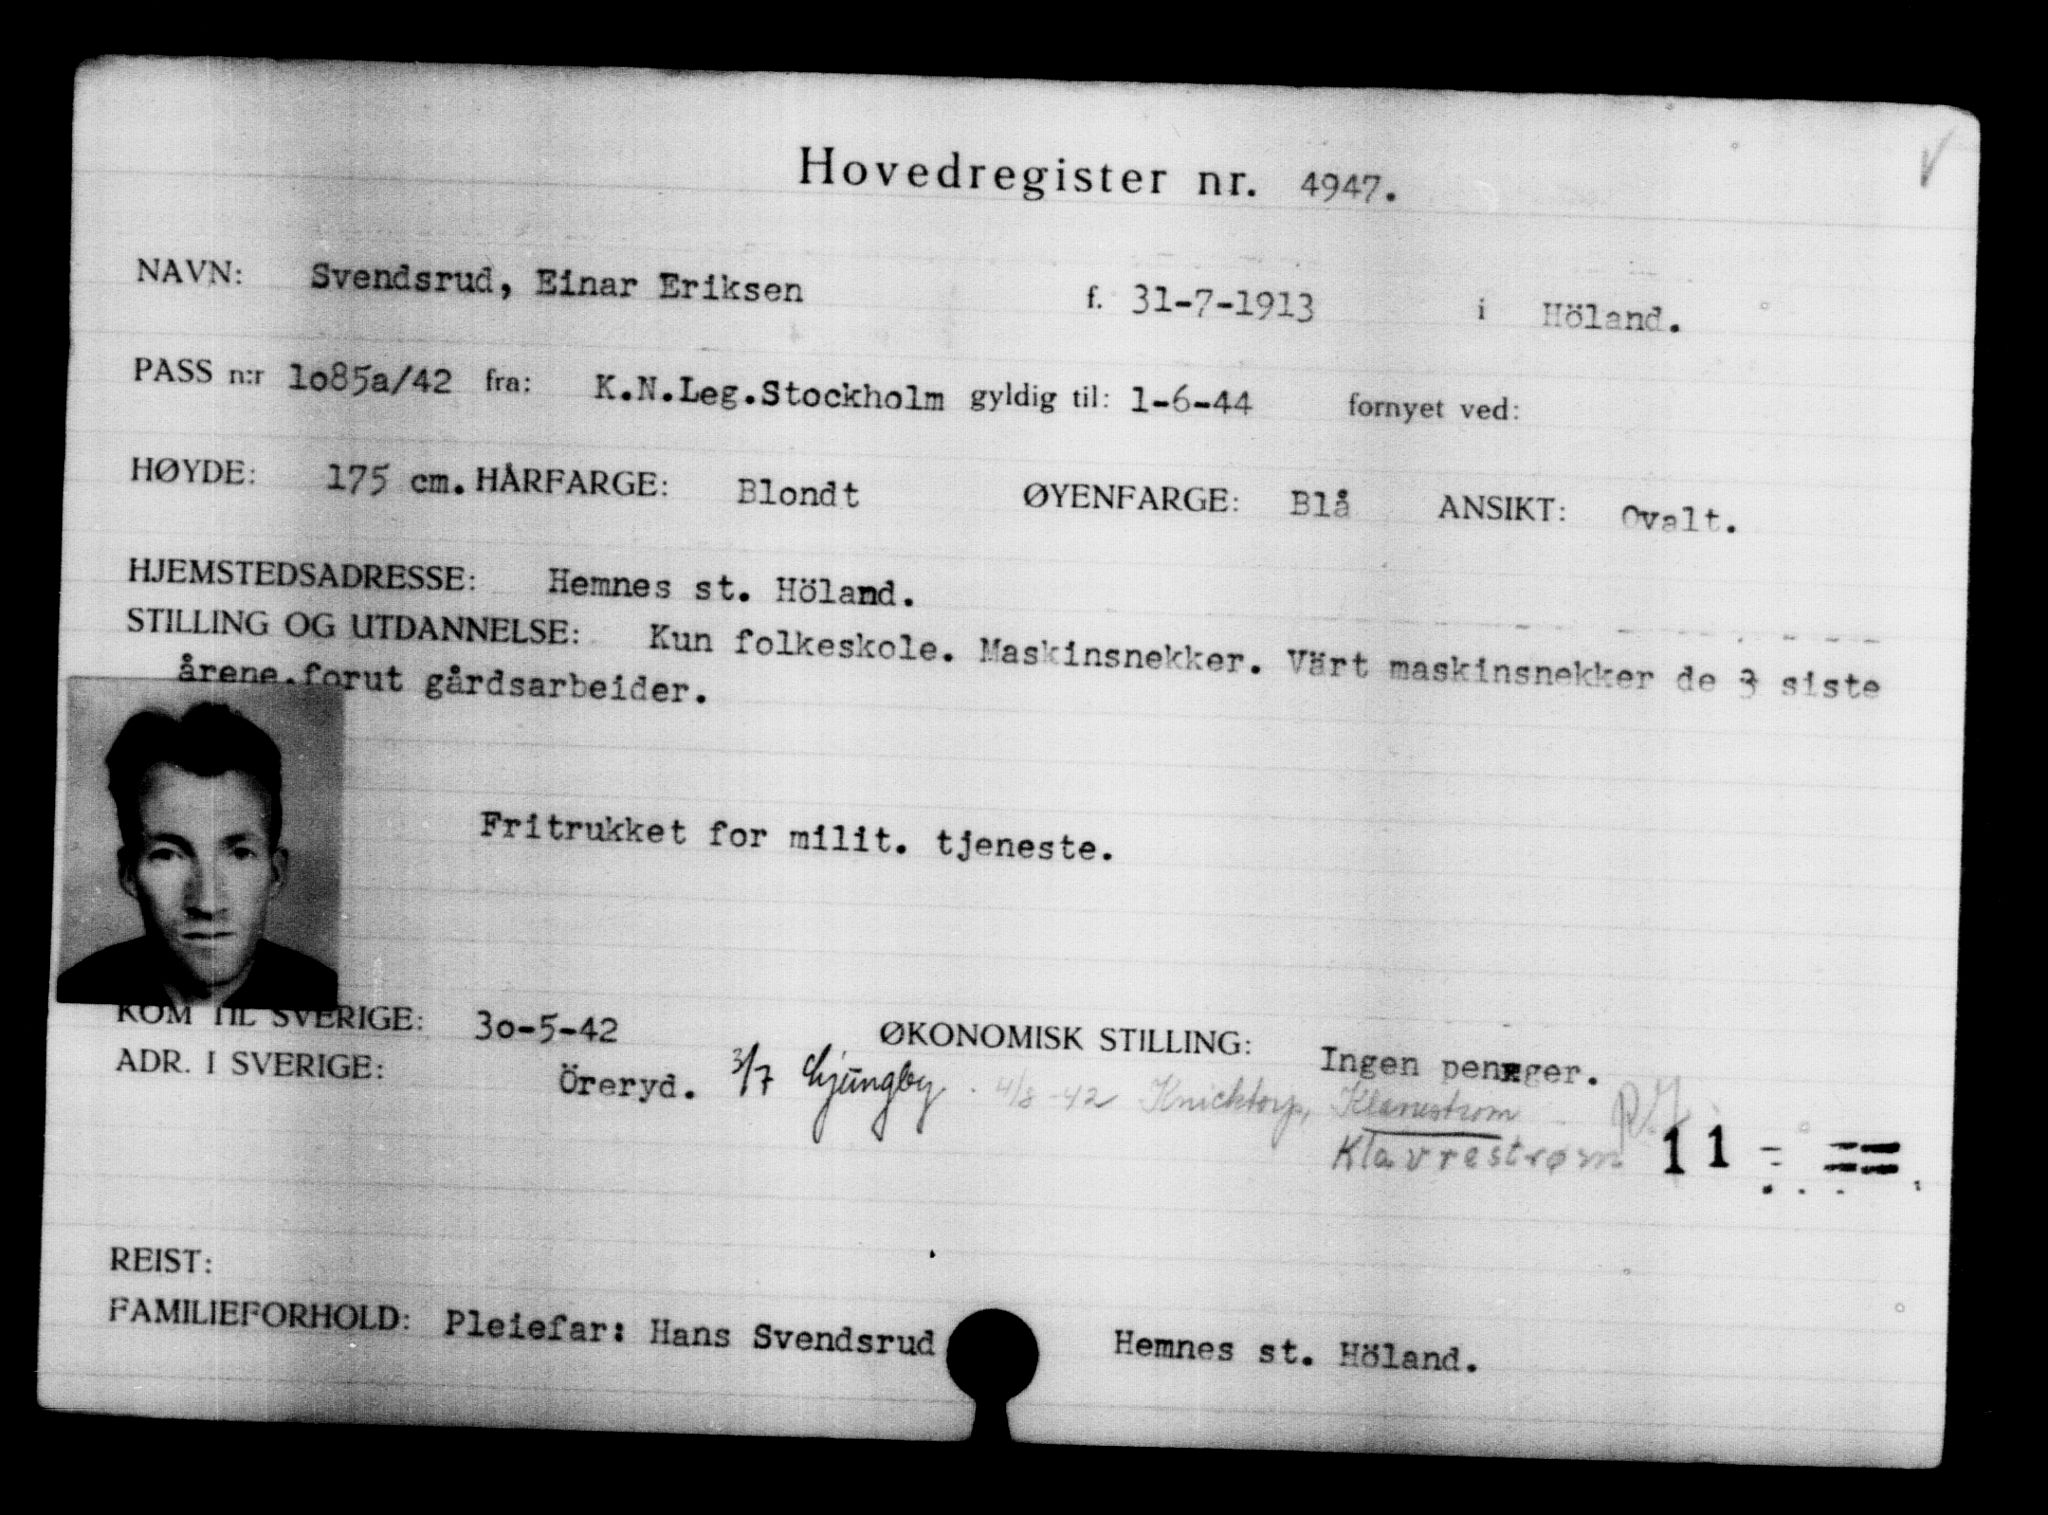 Hovedregister nr. 4947.
NAVN: Svendsrud, Einar Eriksen f. 31-7-1913 i Höland.
PASS n:r 1o85a/42 fra: K.N.Leg.Stockholm gyldig til: 1-6-44 fornyet ved:
HØYDE: 175 cm. HÅRFARGE: Blondt ØYENFARGE: Blå ANSIKT: Ovalt.
HJEMSTEDSADRESSE: Hemnes st. Höland.
STILLING OG UTDANNELSE: Kun folkeskole. Maskinsnekker. Värt maskinsnekker de 3 siste
årene.forut gårdsarbeider.
Fritrukket for milit. tjeneste.
KOM TIL SVERIGE: 3o-5-42 ØKONOMISK STILLING: Ingen penger.
ADR. I SVERIGE: Öreryd. 3/7 Ljungby. 4/8-42 Knicktorp, Klavrestrom
Klavrestrøm 11
REIST:
FAMILIEFORHOLD: Pleiefar: Hans Svendsrud Hemnes st. Höland.